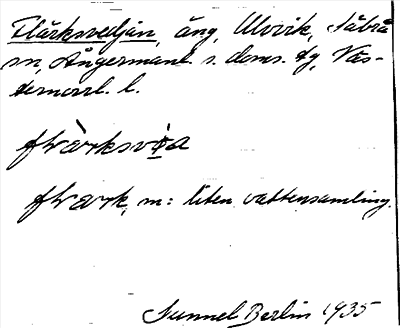 Flärksvedjan, äng, Ulvvik, Säbrå
sn, Ångermanl. s. doms. tg, Väs-
ternorrl. l.
flvärksvıa
flvark, m: liten vattensamling.
Sunnel Berlin 1935